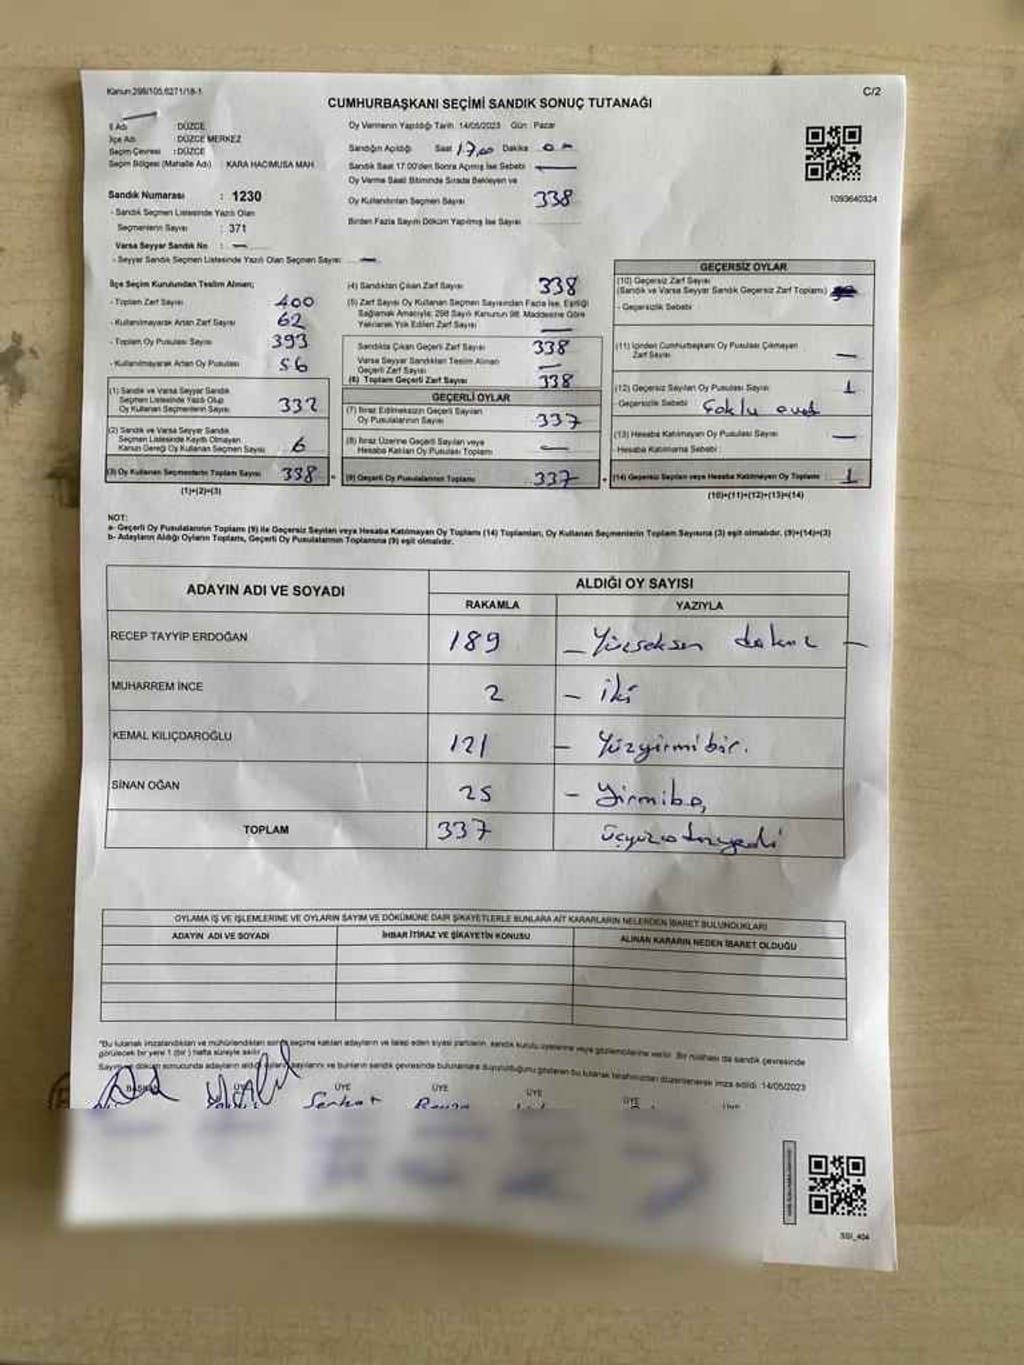 Kanun:298/105,6271/18-1
C/2
CUMHURBAŞKANI SEÇİMİ SANDIK SONUÇ TUTANAĞI
İl Adı : DÜZCE
İlçe Adı : DÜZCE MERKEZ
Seçim Çevresi : DÜZCE
Seçim Bölgesi (Mahalle Adı) KARA HACIMUSA MAH.
Sandık Numarası : 1230
- Sandık Seçmen Listesinde Yazılı Olan
Seçmenlerin Sayısı : 371
Varsa Seyyar Sandık No : —
- Seyyar Sandık Seçmen Listesinde Yazılı Olan Seçmen Sayısı : —
Oy Vermenin Yapıldığı Tarih :14/05/2023 Gün : Pazar
Sandığın Açıldığı Saat 17,00 Dakika
Sandık Saat 17.00'den Sonra Açılmış İse Sebebi : —
Oy Verme Saati Bitiminde Sırada Bekleyen ve
Oy Kullandırılan Seçmen Sayısı 338
Birden Fazla Sayım Döküm Yapılmış İse Sayısı
1093640324
İlçe Seçim Kurulundan Teslim Alınan;
- Toplam Zarf Sayısı 400
- Kullanılmayarak Artan Zarf Sayısı 62
- Toplam Oy Pusulası Sayısı 393
- Kullanılmayarak Artan Oy Pusulası 56
(1) Sandık ve Varsa Seyyar Sandık
Seçmen Listesinde Yazılı Olup
Oy Kullanan Seçmenlerin Sayısı 332
(2) Sandık ve Varsa Seyyar Sandık
Seçmen Listesinde Kayıtlı Olmayan
Kanun Gereği Oy Kullanan Seçmen Sayısı 6
(3) Oy Kullanan Seçmenlerin Toplam Sayısı 338
(1)+(2)=(3)
(4) Sandıktan Çıkan Zarf Sayısı 338
(5) Zarf Sayısı Oy Kullanan Seçmen Sayısından Fazla İse, Eşitliği
Sağlamak Amacıyla; 298 Sayılı Kanunun 98. Maddesine Göre
Yakılarak Yok Edilen Zarf Sayısı —
Sandıkta Çıkan Geçerli Zarf Sayısı 338
Varsa Seyyar Sandıktan Teslim Alınan
Geçerli Zarf Sayısı —
(6) Toplam Geçerli Zarf Sayısı 338
GEÇERLİ OYLAR
(7) İtiraz Edilmeksizin Geçerli Sayılan
Oy Pusulalarının Sayısı 337
(8) İtiraz Üzerine Geçerli Sayılan veya
Hesaba Katılan Oy Pusulası Toplamı —
(9) Geçerli Oy Pusulalarının Toplamı 337
GEÇERSİZ OYLAR
(10) Geçersiz Zarf Sayısı
(Sandık ve Varsa Seyyar Sandık Geçersiz Zarf Toplamı)
- Geçersizlik Sebebi
(11) İçinden Cumhurbaşkanı Oy Pusulası Çıkmayan
Zarf Sayısı —
(12) Geçersiz Sayılan Oy Pusulası Sayısı 1
- Geçersizlik Sebebi Çoklu evet
(13) Hesaba Katılmayan Oy Pusulası Sayısı —
Hesaba Katılmama Sebebi :
(14) Geçersiz Sayılan veya Hesaba Katılmayan Oy Toplamı 1
(10)+(11)+(12)+(13)=(14)
NOT:
a- Geçerli Oy Pusulalarının Toplamı (9) ile Geçersiz Sayılan veya Hesaba Katılmayan Oy Toplamı (14) Toplamları, Oy Kullanan Seçmenlerin Toplam Sayısına (3) eşit olmalıdır. (9)+(14)=(3)
b- Adayların Aldığı Oyların Toplamı, Geçerli Oy Pusulalarının Toplamına (9) eşit olmalıdır.
ADAYIN ADI VE SOYADI
ALDIĞI OY SAYISI
RAKAMLA YAZIYLA
RECEP TAYYİP ERDOĞAN 189 – Yüzseksen dokuz –
MUHARREM İNCE 2 – iki
KEMAL KILIÇDAROĞLU 121 – Yüzyirmibir.
SİNAN OĞAN 25 – Yirmibeş
TOPLAM 337 üçyüzotuzyedi
OYLAMA İŞ VE İŞLEMLERİNE VE OYLARIN SAYIM VE DÖKÜMÜNE DAİR ŞİKAYETLERLE BUNLARA AİT KARARLARIN NELERDEN İBARET BULUNDUKLARI
ADAYIN ADI VE SOYADI İHBAR İTİRAZ VE ŞİKAYETİN KONUSU ALINAN KARARIN NEDEN İBARET OLDUĞU
*Bu tutanak imzalandıktan ve mühürlendikten sonra seçime katılan adayların ve talep eden siyasi partilerin, sandık kurulu üyelerine veya gözlemcilerine verilir. Bir nüshası da sandık çevresinde
görülecek bir yere 1 (bir) hafta süreyle asılır.
Sayım ve döküm sonucunda adayların aldığı oyların sayılarını ve bunların sandık çevresinde bulunanlara duyurulduğunu gösteren bu tutanak tarafımızdan düzenlenerek imza edildi. 14/05/2023
BAŞKAN ÜYE ÜYE ÜYE ÜYE ÜYE ÜYE
Serkat
SSI_404